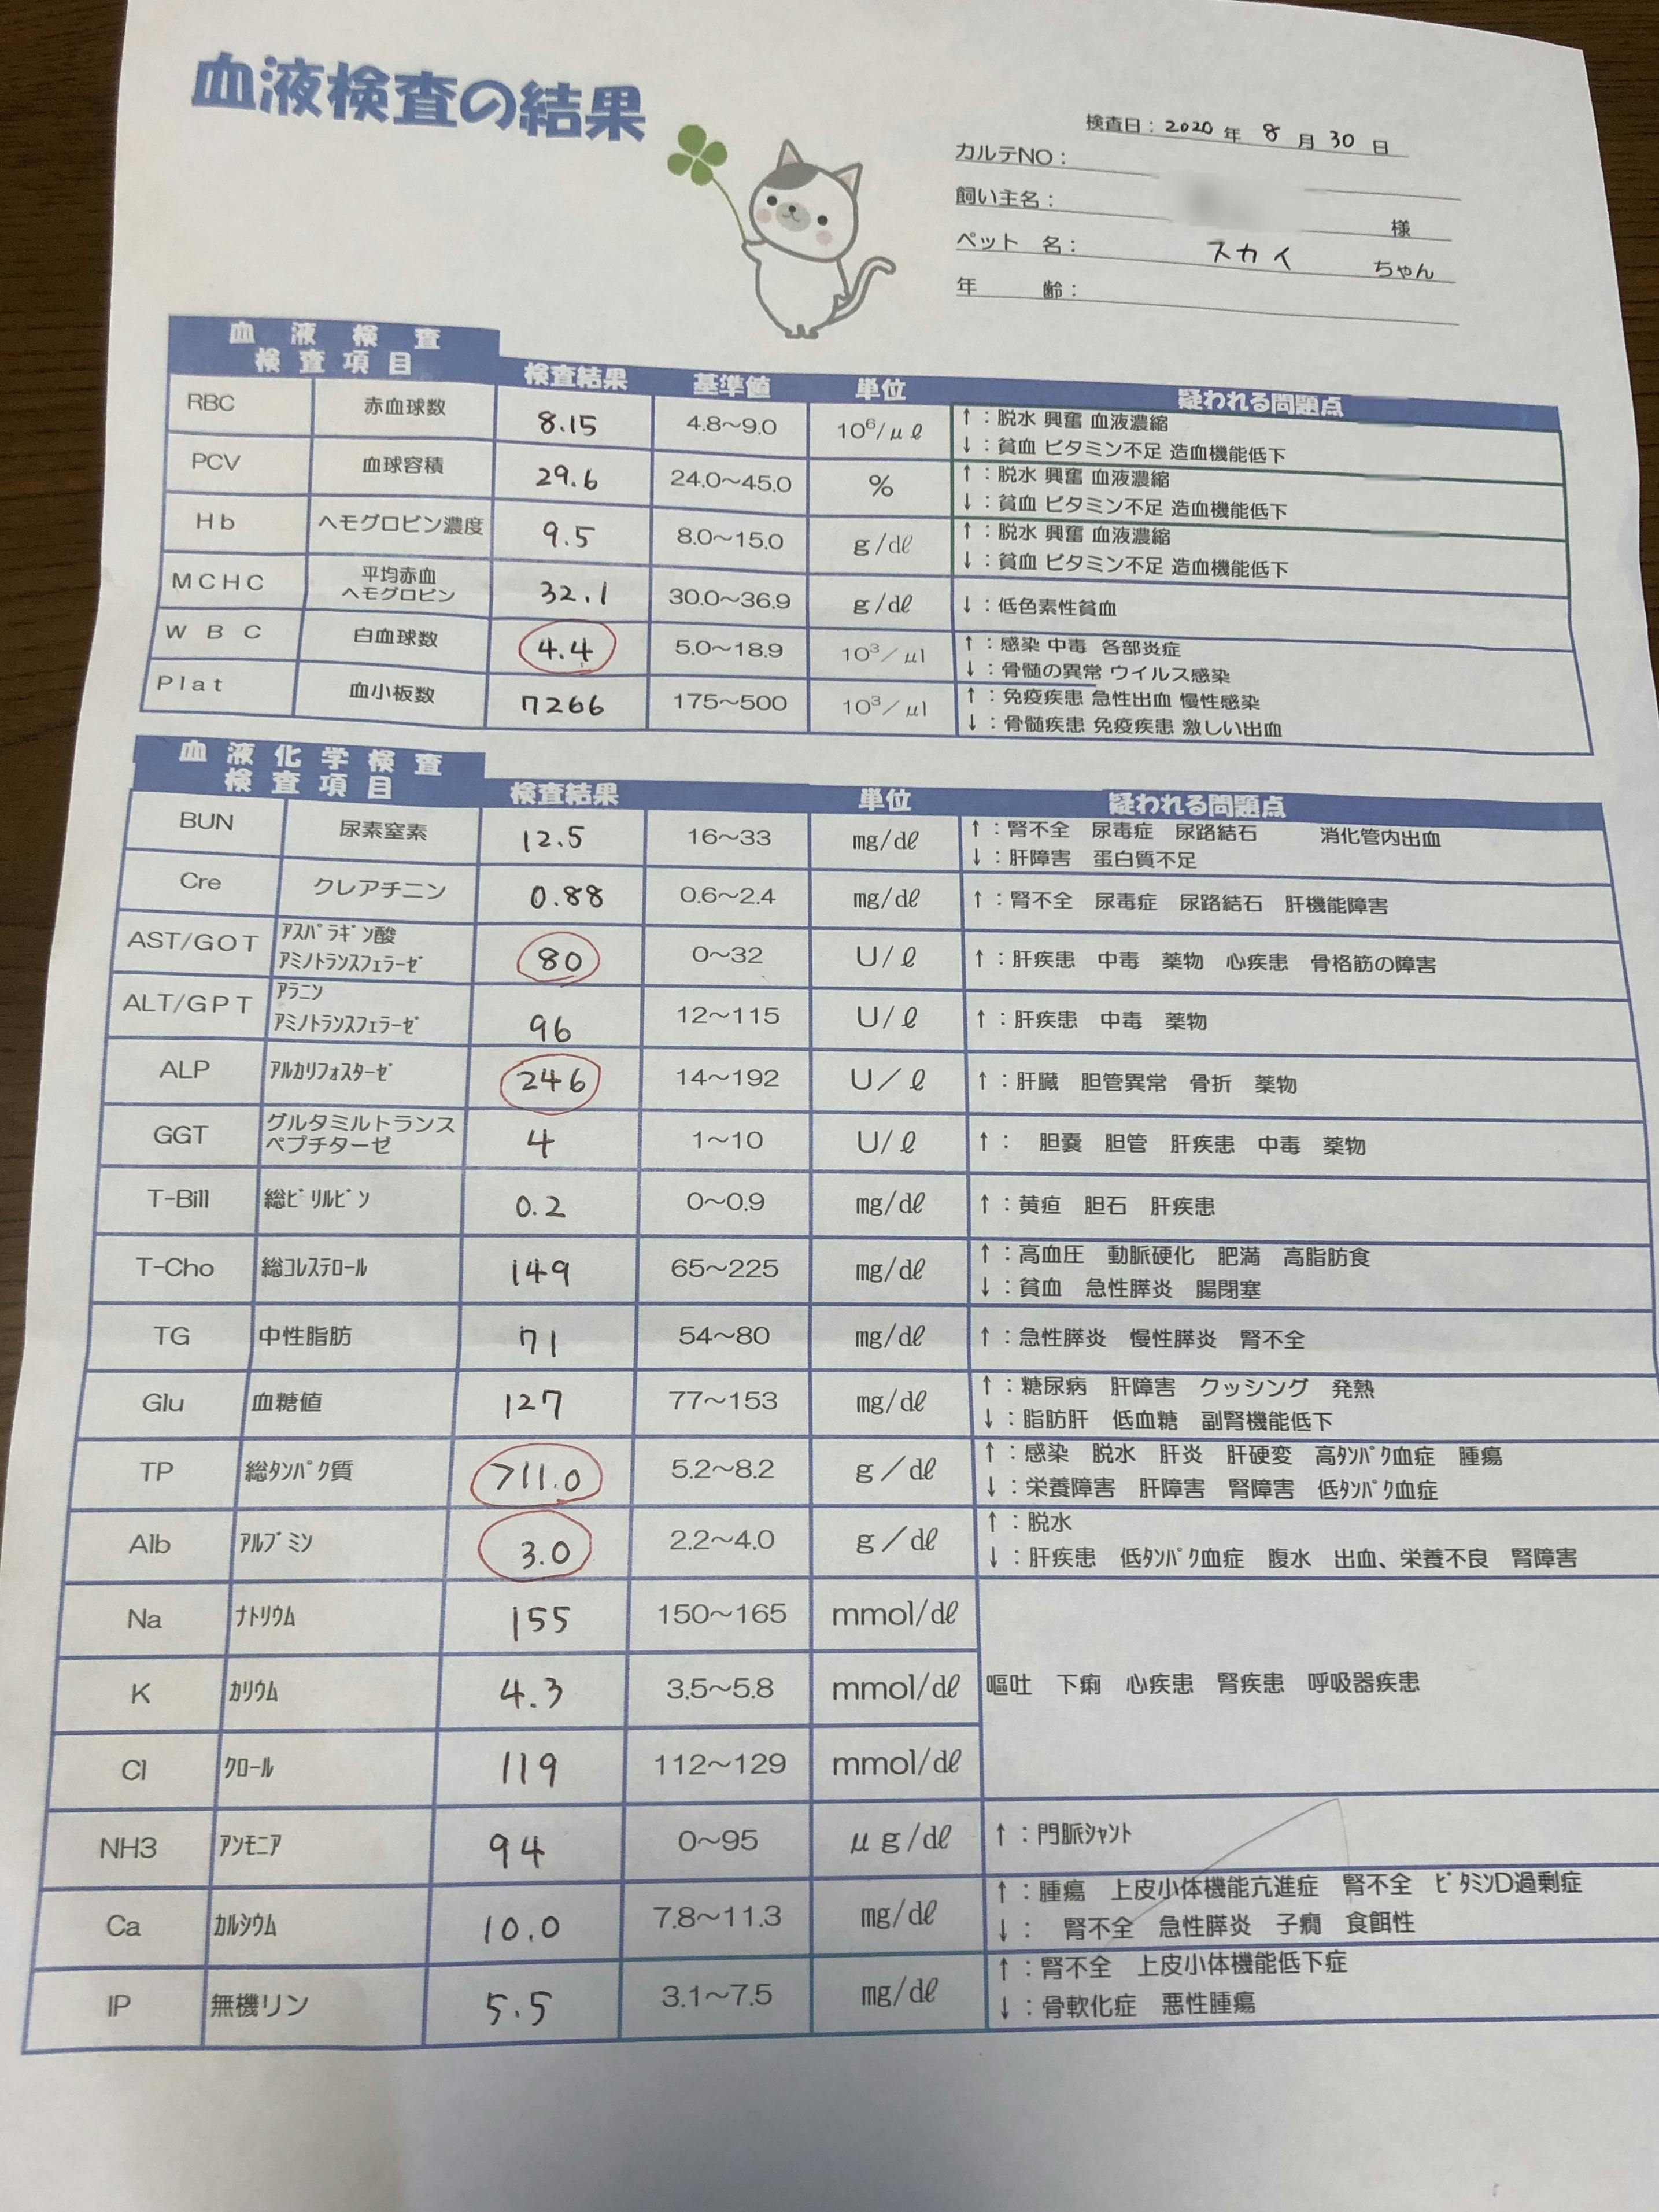 血液検査の結果
検査日：2020年 8月 30日
カルテNO：
飼い主名： 様
ペット 名： スカイ ちゃん
年 齢：
血液検査
検査項目 検査結果 基準値 単位 疑われる問題点
RBC 赤血球数 8.15 4.8～9.0 10⁶/μℓ ↑：脱水 興奮 血液濃縮
↓：貧血 ビタミン不足 造血機能低下
PCV 血球容積 29.6 24.0～45.0 % ↑：脱水 興奮 血液濃縮
↓：貧血 ビタミン不足 造血機能低下
Hb ヘモグロビン濃度 9.5 8.0～15.0 g/dℓ ↑：脱水 興奮 血液濃縮
↓：貧血 ビタミン不足 造血機能低下
MCHC 平均赤血
ヘモグロビン 32.1 30.0～36.9 g/dℓ ↓：低色素性貧血
WBC 白血球数 4.4 5.0～18.9 10³／μl ↑：感染 中毒 各部炎症
↓：骨髄の異常 ウイルス感染
Plat 血小板数 7266 175～500 10³／μl ↑：免疫疾患 急性出血 慢性感染
↓：骨髄疾患 免疫疾患 激しい出血
血液化学検査
検査項目 検査結果 単位 疑われる問題点
BUN 尿素窒素 12.5 16～33 mg/dℓ ↑：腎不全 尿毒症 尿路結石 消化管内出血
↓：肝障害 蛋白質不足
Cre クレアチニン 0.88 0.6～2.4 mg/dℓ ↑：腎不全 尿毒症 尿路結石 肝機能障害
AST/GOT ｱｽﾊﾟﾗｷﾞﾝ酸
ｱﾐﾉﾄﾗﾝｽﾌｪﾗｰｾﾞ 80 0～32 U/ℓ ↑：肝疾患 中毒 薬物 心疾患 骨格筋の障害
ALT/GPT ｱﾗﾆﾝ
ｱﾐﾉﾄﾗﾝｽﾌｪﾗｰｾﾞ 96 12～115 U/ℓ ↑：肝疾患 中毒 薬物
ALP ｱﾙｶﾘﾌｫｽﾀｰｾﾞ 246 14～192 U／ℓ ↑：肝臓 胆管異常 骨折 薬物
GGT グルタミルトランス
ペプチターゼ 4 1～10 U/ℓ ↑： 胆嚢 胆管 肝疾患 中毒 薬物
T-Bill 総ﾋﾞﾘﾙﾋﾞﾝ 0.2 0～0.9 mg/dℓ ↑：黄疸 胆石 肝疾患
T-Cho 総ｺﾚｽﾃﾛｰﾙ 149 65～225 mg/dℓ ↑：高血圧 動脈硬化 肥満 高脂肪食
↓：貧血 急性膵炎 腸閉塞
TG 中性脂肪 71 54～80 mg/dℓ ↑：急性膵炎 慢性膵炎 腎不全
Glu 血糖値 127 77～153 mg/dℓ ↑：糖尿病 肝障害 クッシング 発熱
↓：脂肪肝 低血糖 副腎機能低下
TP 総ﾀﾝﾊﾟｸ質 >11.0 5.2～8.2 g／dℓ ↑：感染 脱水 肝炎 肝硬変 高ﾀﾝﾊﾟｸ血症 腫瘍
↓：栄養障害 肝障害 腎障害 低ﾀﾝﾊﾟｸ血症
Alb ｱﾙﾌﾞﾐﾝ 3.0 2.2～4.0 g／dℓ ↑：脱水
↓：肝疾患 低ﾀﾝﾊﾟｸ血症 腹水 出血、栄養不良 腎障害
Na ﾅﾄﾘｳﾑ 155 150～165 mmol/dℓ
K ｶﾘｳﾑ 4.3 3.5～5.8 mmol/dℓ 嘔吐 下痢 心疾患 腎疾患 呼吸器疾患
Cl ｸﾛｰﾙ 119 112～129 mmol/dℓ
NH3 ｱﾝﾓﾆｱ 94 0～95 μg/dℓ ↑：門脈ｼｬﾝﾄ
Ca ｶﾙｼｳﾑ 10.0 7.8～11.3 mg/dℓ ↑：腫瘍 上皮小体機能亢進症 腎不全 ﾋﾞﾀﾐﾝD過剰症
↓： 腎不全 急性膵炎 子癇 食餌性
IP 無機リン 5.5 3.1～7.5 mg/dℓ ↑：腎不全 上皮小体機能低下症
↓：骨軟化症 悪性腫瘍